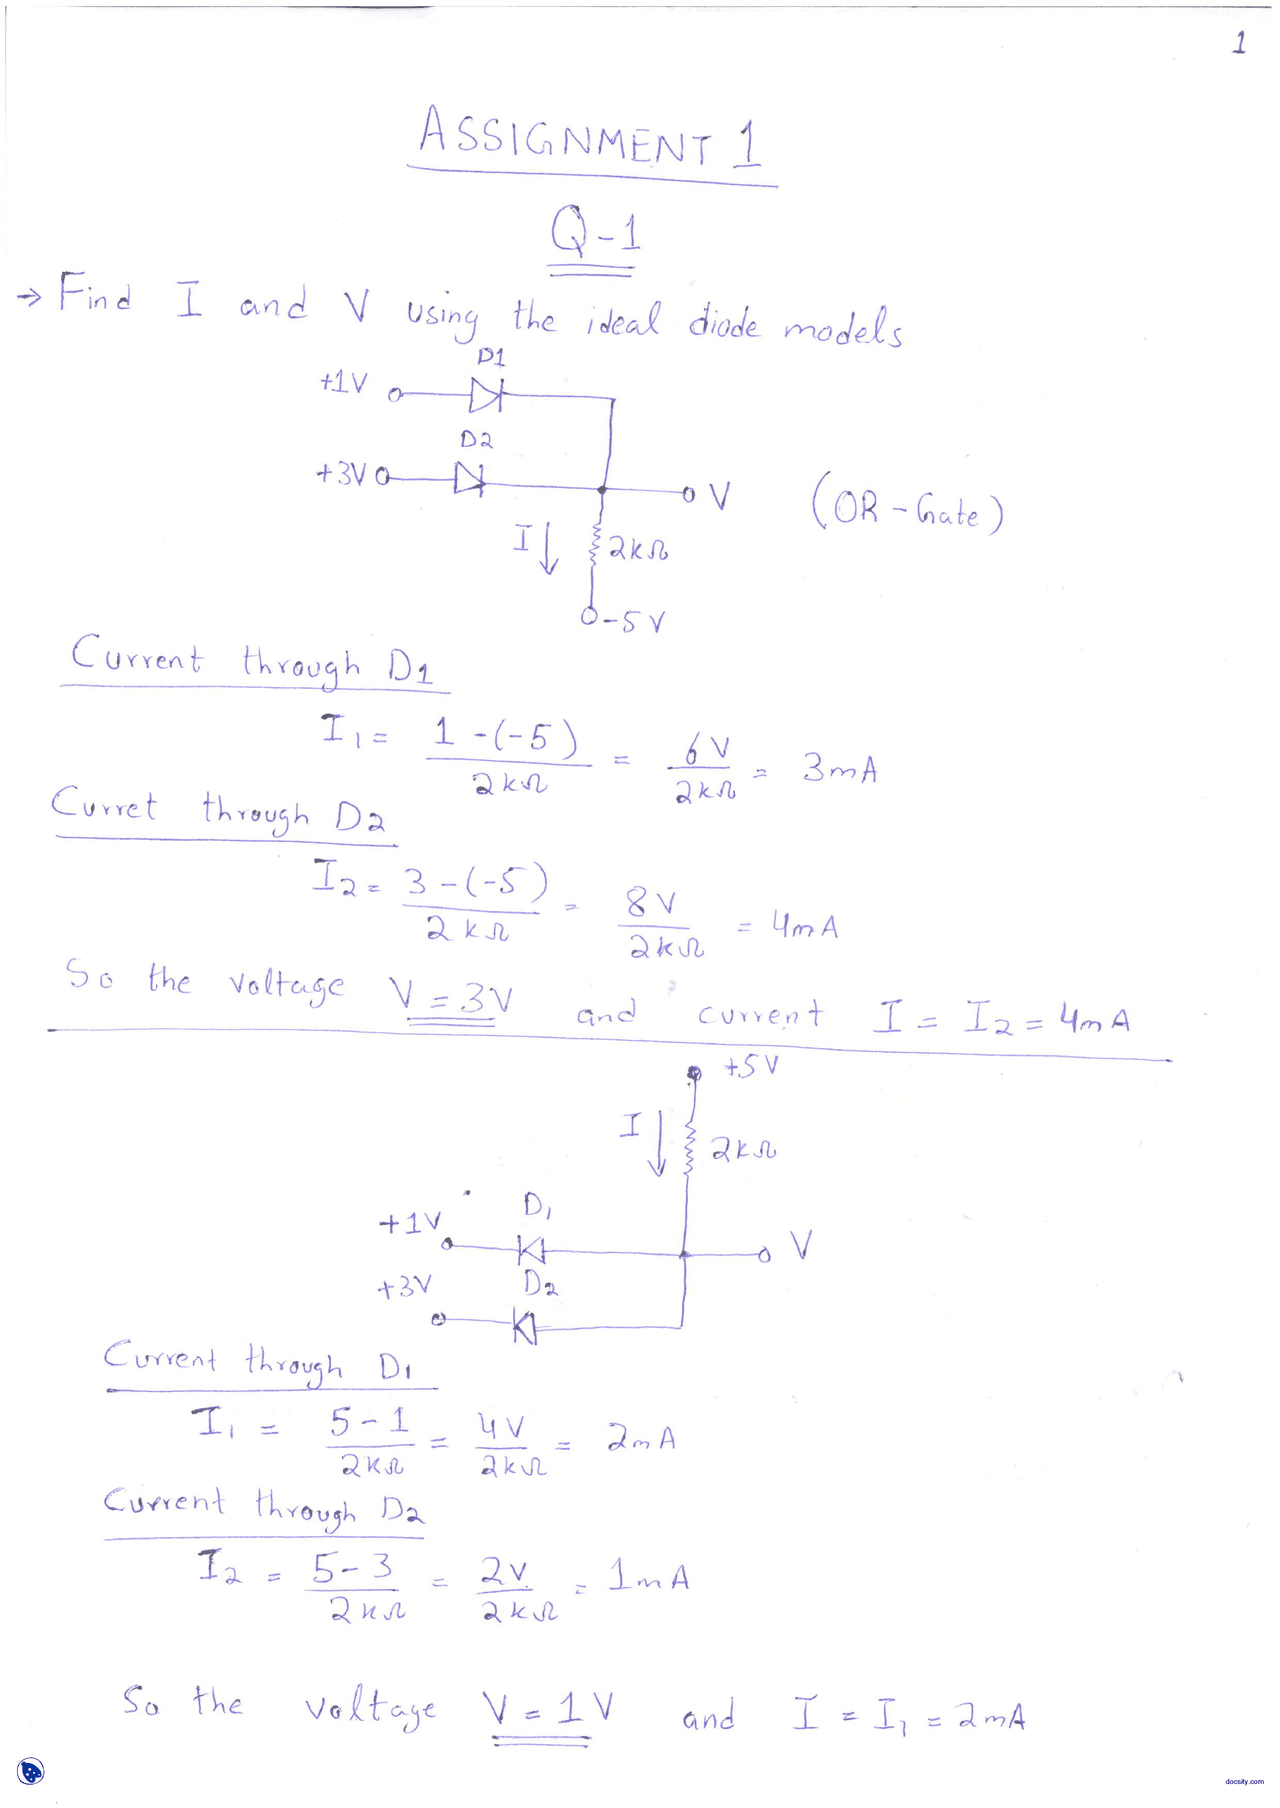 1
ASSIGNMENT 1
Q-1
→ Find I and V using the ideal diode models
D1
+1V
D2
+3V
V
(OR-Gate)
I↓ 2kΩ
-5V
Current through D1
I₁ = 1-(-5) / 2kΩ = 6V / 2kΩ = 3mA
Curret through D2
I2 = 3-(-5) / 2kΩ = 8V / 2kΩ = 4mA
So the voltage V = 3V and current I = I2 = 4mA
+5V
I↓ 2kΩ
D₁
+1V
V
D2
+3V
Current through D₁
I₁ = 5-1 / 2kΩ = 4V / 2kΩ = 2mA
Current through D2
I2 = 5-3 / 2kΩ = 2V / 2kΩ = 1mA
So the voltage V = 1V and I = I₁ = 2mA
docsity.com